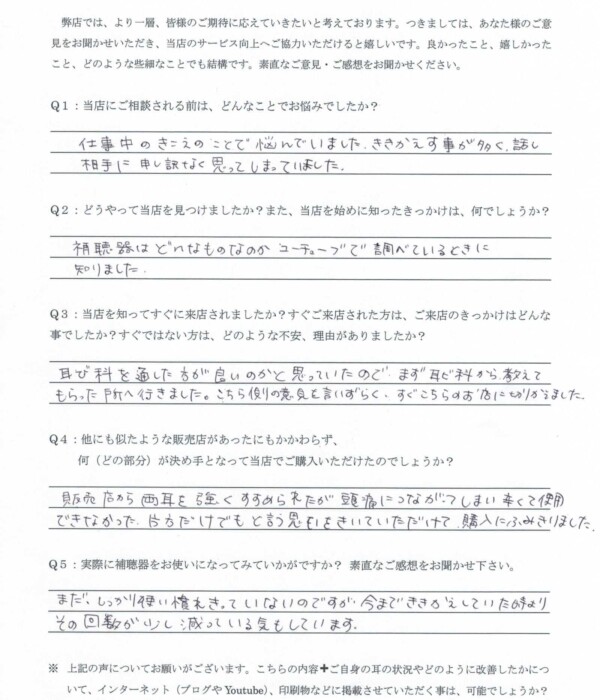 弊店では、より一層、皆様のご期待に応えていきたいと考えております。つきましては、あなた様のご意
見をお聞かせいただき、当店のサービス向上へご協力いただけると嬉しいです。良かったこと、嬉しかった
こと、どのような些細なことでも結構です。素直なご意見・ご感想をお聞かせください。
Q1：当店にご相談される前は、どんなことでお悩みでしたか？
仕事中のきこえのことで悩んでいました。ききかえす事が多く、話し
相手に申し訳なく思ってしまっていました。
Q2：どうやって当店を見つけましたか？また、当店を始めに知ったきっかけは、何でしょうか？
補聴器はどんなものなのかユーチューブで調べているときに
知りました。
Q3：当店を知ってすぐに来店されましたか？すぐご来店された方は、ご来店のきっかけはどんな
事でしたか？すぐではない方は、どのような不安、理由がありましたか？
耳び科を通した方が良いのかと思っていたので、まず耳び科から教えて
もらった所へ行きました。こちら側の意見を言いずらく、すぐこちらのお店に切りかえました。
Q4：他にも似たような販売店があったにもかかわらず、
何（どの部分）が決め手となって当店でご購入いただけたのでしょうか？
販売店から両耳を強くすすめられたが頭痛につながってしまい辛くて使用
できなかった。片方だけでもと言う思いをきいていただけて、購入にふみきりました。
Q5：実際に補聴器をお使いになってみていかがですか？ 素直なご感想をお聞かせ下さい。
まだ、しっかり使い慣れきっていないのですが、今までききかえしていた時より
その回数が少し減っている気もしています。
※ 上記の声についてお願いがございます。こちらの内容+ご自身の耳の状況やどのように改善したかにつ
いて、インターネット（ブログやYoutube）、印刷物などに掲載させていただく事は、可能でしょうか？